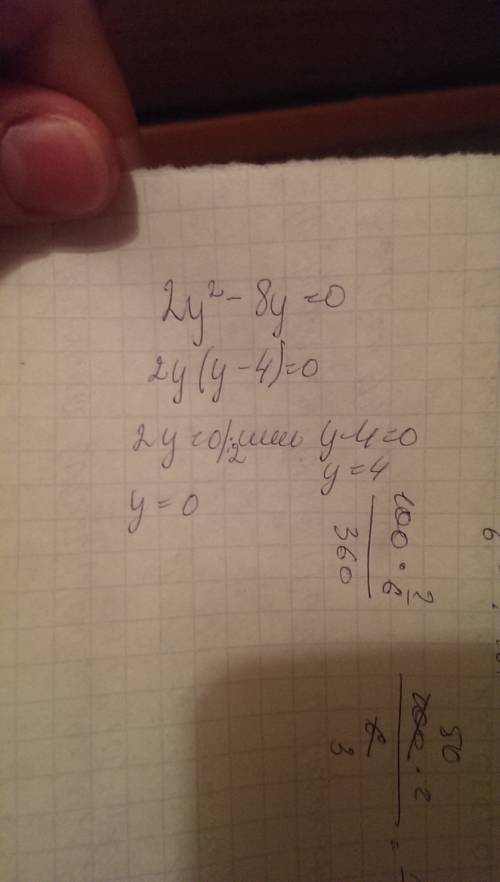 2y² - 8y = 0
2y(y - 4) = 0
2y = 0 |:2 или y - 4 = 0
y = 4
y = 0
100 · 2/6
360
50
100 · 2
6
3
=